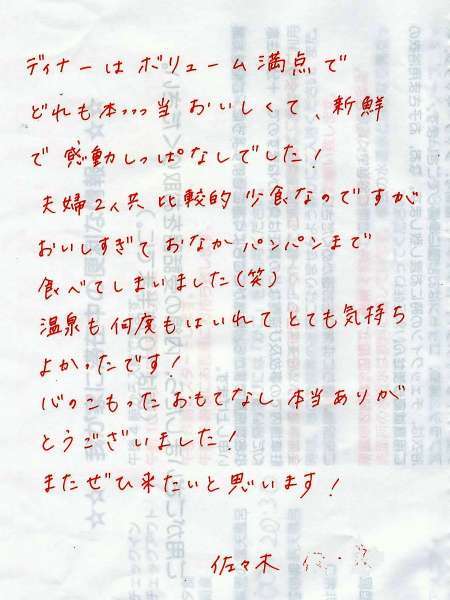 ディナーは ボリューム満点で
どれも本っっっ当 おいしくて、新鮮
で 感動しっぱなしでした！
夫婦2人共 比較的 少食なのですが
おいしすぎて おなかパンパンまで
食べてしまいました(笑)
温泉も何度もはいれて とても気持ち
よかったです！
心のこもった おもてなし 本当ありが
とうございました！
またぜひ来たいと思います！
佐々木